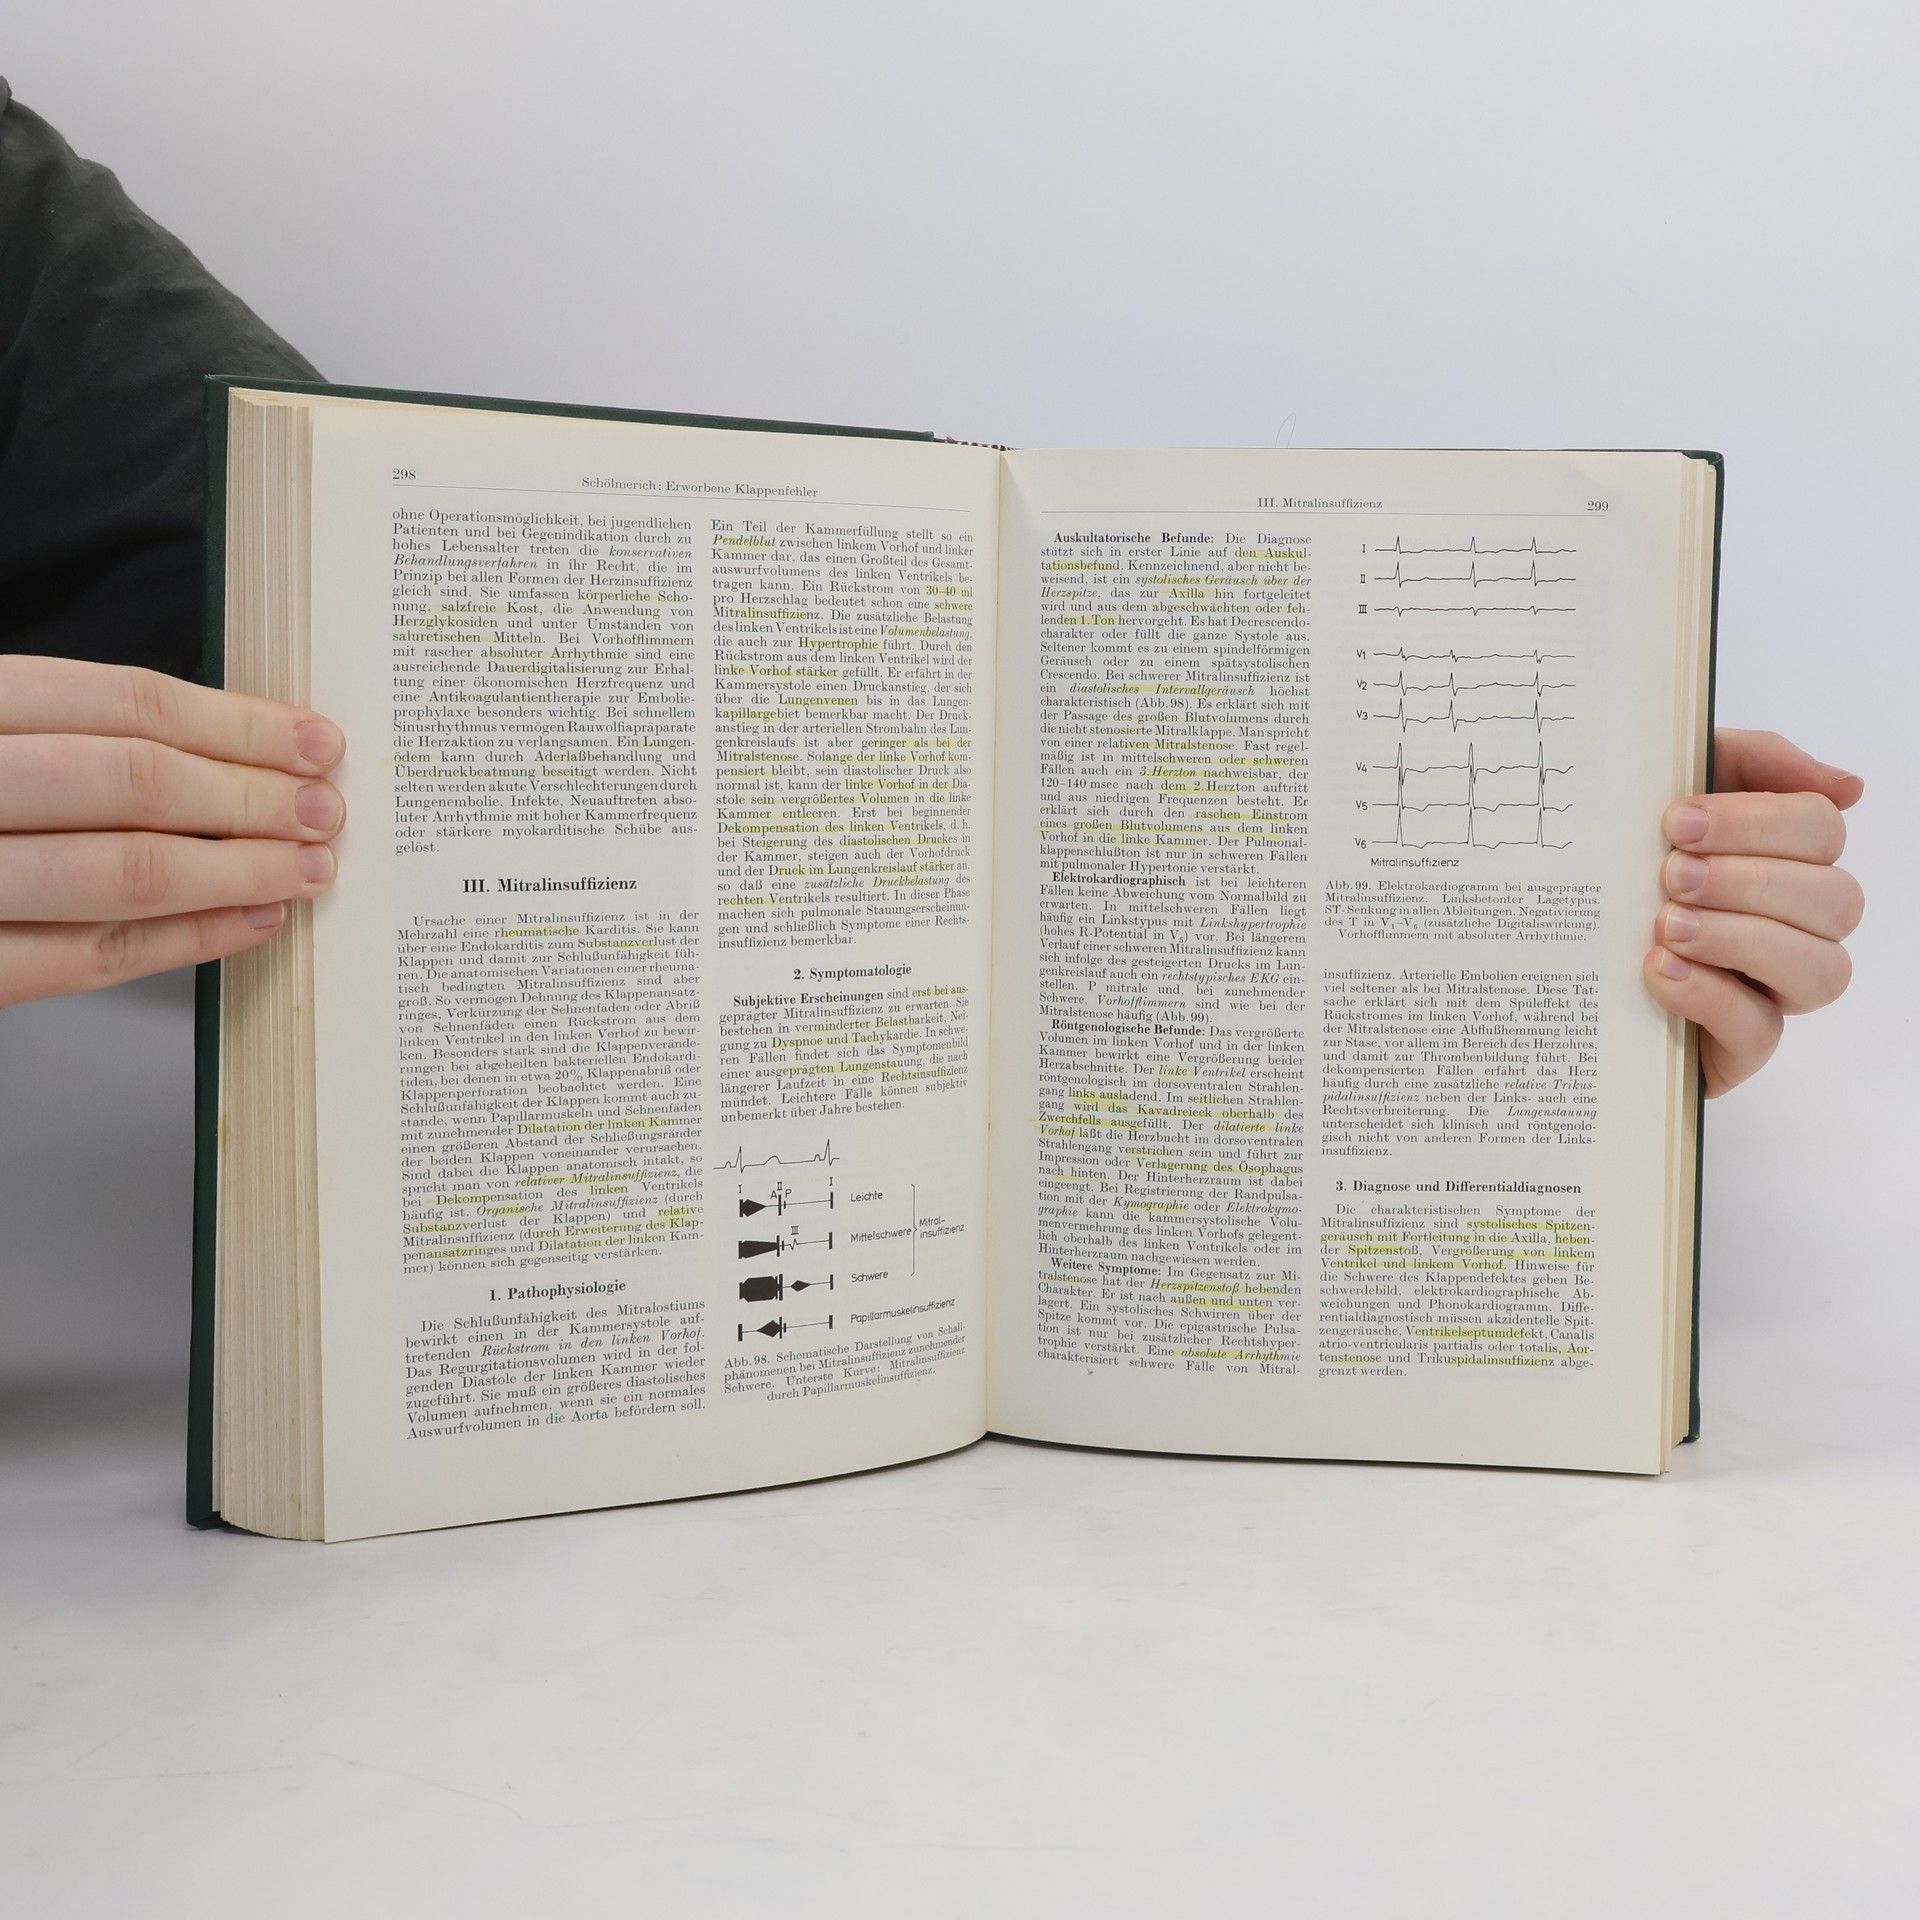 298
Schölmerich: Erworbene Klappenfehler
ohne Operationsmöglichkeit, bei jugendlichen
Patienten und bei Gegenindikation durch zu
hohes Lebensalter treten die konservativen
Behandlungsverfahren in ihr Recht, die im
Prinzip bei allen Formen der Herzinsuffizienz
gleich sind. Sie umfassen körperliche Scho-
nung, salzfreie Kost, die Anwendung von
Herzglykosiden und unter Umständen von
saluretischen Mitteln. Bei Vorhofflimmern
mit rascher absoluter Arrhythmie sind eine
ausreichende Dauerdigitalisierung zur Erhal-
tung einer ökonomischen Herzfrequenz und
eine Antikoagulantientherapie zur Embolie-
prophylaxe besonders wichtig. Bei schnellem
Sinusrhythmus vermögen Rauwolfiapräparate
die Herzaktion zu verlangsamen. Ein Lungen-
ödem kann durch Aderlaßbehandlung und
Überdruckbeatmung beseitigt werden. Nicht
selten werden akute Verschlechterungen durch
Lungenembolie, Infekte, Neuauftreten abso-
luter Arrhythmie mit hoher Kammerfrequenz
oder stärkere myokarditische Schübe aus-
gelöst.
III. Mitralinsuffizienz
Ursache einer Mitralinsuffizienz ist in der
Mehrzahl eine rheumatische Karditis. Sie kann
über eine Endokarditis zum Substanzverlust der
Klappen und damit zur Schlußunfähigkeit füh-
ren. Die anatomischen Variationen einer rheuma-
tisch bedingten Mitralinsuffizienz sind aber
groß. So vermögen Dehnung des Klappenansatz-
ringes, Verkürzung der Sehnenfäden oder Abriß
von Sehnenfäden einen Rückstrom aus dem
linken Ventrikel in den linken Vorhof zu bewir-
ken. Besonders stark sind die Klappenverände-
rungen bei abgeheilten bakteriellen Endokardi-
tiden, bei denen in etwa 20% Klappenabriß oder
Klappenperforation beobachtet werden. Eine
Schlußunfähigkeit der Klappen kommt auch zu-
stande, wenn Papillarmuskeln und Sehnenfäden
mit zunehmender Dilatation der linken Kammer
einen größeren Abstand der Schließungsränder
der beiden Klappen voneinander verursachen.
Sind dabei die Klappen anatomisch intakt, so
spricht man von relativer Mitralinsuffizienz, die
bei Dekompensation des linken Ventrikels
häufig ist. Organische Mitralinsuffizienz (durch
Substanzverlust der Klappen) und relative
Mitralinsuffizienz (durch Erweiterung des Klap-
penansatzringes und Dilatation der linken Kam-
mer) können sich gegenseitig verstärken.
1. Pathophysiologie
Die Schlußunfähigkeit des Mitralostiums
bewirkt einen in der Kammersystole auf-
tretenden Rückstrom in den linken Vorhof.
Das Regurgitationsvolumen wird in der fol-
genden Diastole der linken Kammer wieder
zugeführt. Sie muß ein größeres diastolisches
Volumen aufnehmen, wenn sie ein normales
Auswurfvolumen in die Aorta befördern soll.
Ein Teil der Kammerfüllung stellt so ein
Pendelblut zwischen linkem Vorhof und linker
Kammer dar, das einen Großteil des Gesamt-
auswurfvolumens des linken Ventrikels be-
tragen kann. Ein Rückstrom von 30–40 ml
pro Herzschlag bedeutet schon eine schwere
Mitralinsuffizienz. Die zusätzliche Belastung
des linken Ventrikels ist eine Volumenbelastung,
die auch zur Hypertrophie führt. Durch den
Rückstrom aus dem linken Ventrikel wird der
linke Vorhof stärker gefüllt. Er erfährt in der
Kammersystole einen Druckanstieg, der sich
über die Lungenvenen bis in das Lungen-
kapillargebiet bemerkbar macht. Der Druck-
anstieg in der arteriellen Strombahn des Lun-
genkreislaufs ist aber geringer als bei der
Mitralstenose. Solange der linke Vorhof kom-
pensiert bleibt, sein diastolischer Druck also
normal ist, kann der linke Vorhof in der Dia-
stole sein vergrößertes Volumen in die linke
Kammer entleeren. Erst bei beginnender
Dekompensation des linken Ventrikels, d. h.
bei Steigerung des diastolischen Druckes in
der Kammer, steigen auch der Vorhofdruck
und der Druck im Lungenkreislauf stärker an,
so daß eine zusätzliche Druckbelastung des
rechten Ventrikels resultiert. In dieser Phase
machen sich pulmonale Stauungserscheinun-
gen und schließlich Symptome einer Rechts-
insuffizienz bemerkbar.
2. Symptomatologie
Subjektive Erscheinungen sind erst bei aus-
geprägter Mitralinsuffizienz zu erwarten. Sie
bestehen in verminderter Belastbarkeit, Nei-
gung zu Dyspnoe und Tachykardie. In schwe-
ren Fällen findet sich das Symptomenbild
einer ausgeprägten Lungenstauung, die nach
längerer Laufzeit in eine Rechtsinsuffizienz
mündet. Leichtere Fälle können subjektiv
unbemerkt über Jahre bestehen.
I II I
A P
Leichte
III
Mittelschwere
Mitral-
insuffizienz
Schwere
Papillarmuskelinsuffizienz
Abb. 98. Schematische Darstellung von Schall-
phänomenen bei Mitralinsuffizienz zunehmender
Schwere. Unterste Kurve: Mitralinsuffizienz
durch Papillarmuskelinsuffizienz.
III. Mitralinsuffizienz
299
Auskultatorische Befunde: Die Diagnose
stützt sich in erster Linie auf den Auskul-
tationsbefund. Kennzeichnend, aber nicht be-
weisend, ist ein systolisches Geräusch über der
Herzspitze, das zur Axilla hin fortgeleitet
wird und aus dem abgeschwächten oder feh-
lenden 1. Ton hervorgeht. Es hat Decrescendo-
charakter oder füllt die ganze Systole aus.
Seltener kommt es zu einem spindelförmigen
Geräusch oder zu einem spätsystolischen
Crescendo. Bei schwerer Mitralinsuffizienz ist
ein diastolisches Intervallgeräusch höchst
charakteristisch (Abb. 98). Es erklärt sich mit
der Passage des großen Blutvolumens durch
die nicht stenosierte Mitralklappe. Man spricht
von einer relativen Mitralstenose. Fast regel-
mäßig ist in mittelschweren oder schweren
Fällen auch ein 3. Herzton nachweisbar, der
120–140 msec nach dem 2. Herzton auftritt
und aus niedrigen Frequenzen besteht. Er
erklärt sich durch den raschen Einstrom
eines großen Blutvolumens aus dem linken
Vorhof in die linke Kammer. Der Pulmonal-
klappenschlußton ist nur in schweren Fällen
mit pulmonaler Hypertonie verstärkt.
Elektrokardiographisch ist bei leichteren
Fällen keine Abweichung vom Normalbild zu
erwarten. In mittelschweren Fällen liegt
häufig ein Linkstypus mit Linkshypertrophie
(hohes R-Potential in V5) vor. Bei längerem
Verlauf einer schweren Mitralinsuffizienz kann
sich infolge des gesteigerten Drucks im Lun-
genkreislauf auch ein rechtstypisches EKG ein-
stellen. P mitrale und, bei zunehmender
Schwere, Vorhofflimmern sind wie bei der
Mitralstenose häufig (Abb. 99).
Röntgenologische Befunde: Das vergrößerte
Volumen im linken Vorhof und in der linken
Kammer bewirkt eine Vergrößerung beider
Herzabschnitte. Der linke Ventrikel erscheint
röntgenologisch im dorsoventralen Strahlen-
gang links ausladend. Im seitlichen Strahlen-
gang wird das Kavadreieck oberhalb des
Zwerchfells ausgefüllt. Der dilatierte linke
Vorhof läßt die Herzbucht im dorsoventralen
Strahlengang verstrichen sein und führt zur
Impression oder Verlagerung des Ösophagus
nach hinten. Der Hinterherzraum ist dabei
eingeengt. Bei Registrierung der Randpulsa-
tion mit der Kymographie oder Elektrokymo-
graphie kann die kammersystolische Volu-
menvermehrung des linken Vorhofs gelegent-
lich oberhalb des linken Ventrikels oder im
Hinterherzraum nachgewiesen werden.
Weitere Symptome: Im Gegensatz zur Mi-
tralstenose hat der Herzspitzenstoß hebenden
Charakter. Er ist nach außen und unten ver-
lagert. Ein systolisches Schwirren über der
Spitze kommt vor. Die epigastrische Pulsa-
tion ist nur bei zusätzlicher Rechtshyper-
trophie verstärkt. Eine absolute Arrhythmie
charakterisiert schwere Fälle von Mitral-
I
II
III
V1
V2
V3
V4
V5
V6
Mitralinsuffizienz
Abb. 99. Elektrokardiogramm bei ausgeprägter
Mitralinsuffizienz. Linksbetonter Lagetypus.
ST-Senkung in allen Ableitungen. Negativierung
des T in V1–V6 (zusätzliche Digitaliswirkung).
Vorhofflimmern mit absoluter Arrhythmie.
insuffizienz. Arterielle Embolien ereignen sich
viel seltener als bei Mitralstenose. Diese Tat-
sache erklärt sich mit dem Spüleffekt des
Rückstromes im linken Vorhof, während bei
der Mitralstenose eine Abflußhemmung leicht
zur Stase, vor allem im Bereich des Herzohres,
und damit zur Thrombenbildung führt. Bei
dekompensierten Fällen erfährt das Herz
häufig durch eine zusätzliche relative Trikus-
pidalinsuffizienz neben der Links- auch eine
Rechtsverbreiterung. Die Lungenstauung
unterscheidet sich klinisch und röntgenolo-
gisch nicht von anderen Formen der Links-
insuffizienz.
3. Diagnose und Differentialdiagnosen
Die charakteristischen Symptome der
Mitralinsuffizienz sind systolisches Spitzen-
geräusch mit Fortleitung in die Axilla, heben-
der Spitzenstoß, Vergrößerung von linkem
Ventrikel und linkem Vorhof. Hinweise für
die Schwere des Klappendefektes geben Be-
schwerdebild, elektrokardiographische Ab-
weichungen und Phonokardiogramm. Diffe-
rentialdiagnostisch müssen akzidentelle Spit-
zengeräusche, Ventrikelseptumdefekt, Canalis
atrio-ventricularis partialis oder totalis, Aor-
tenstenose und Trikuspidalinsuffizienz abge-
grenzt werden.